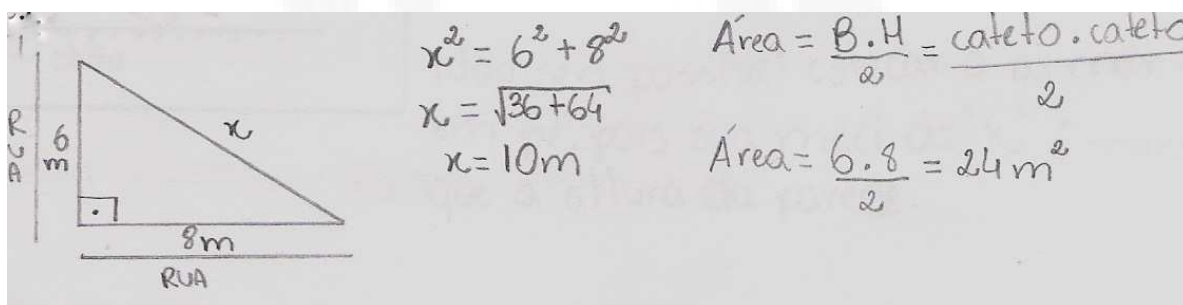 RUA
6
m
x
8m
RUA
x² = 6² + 8²
x = √36+64
x = 10m
Área = B.H/2 = cateto.cateto/2
Área = 6.8/2 = 24 m²